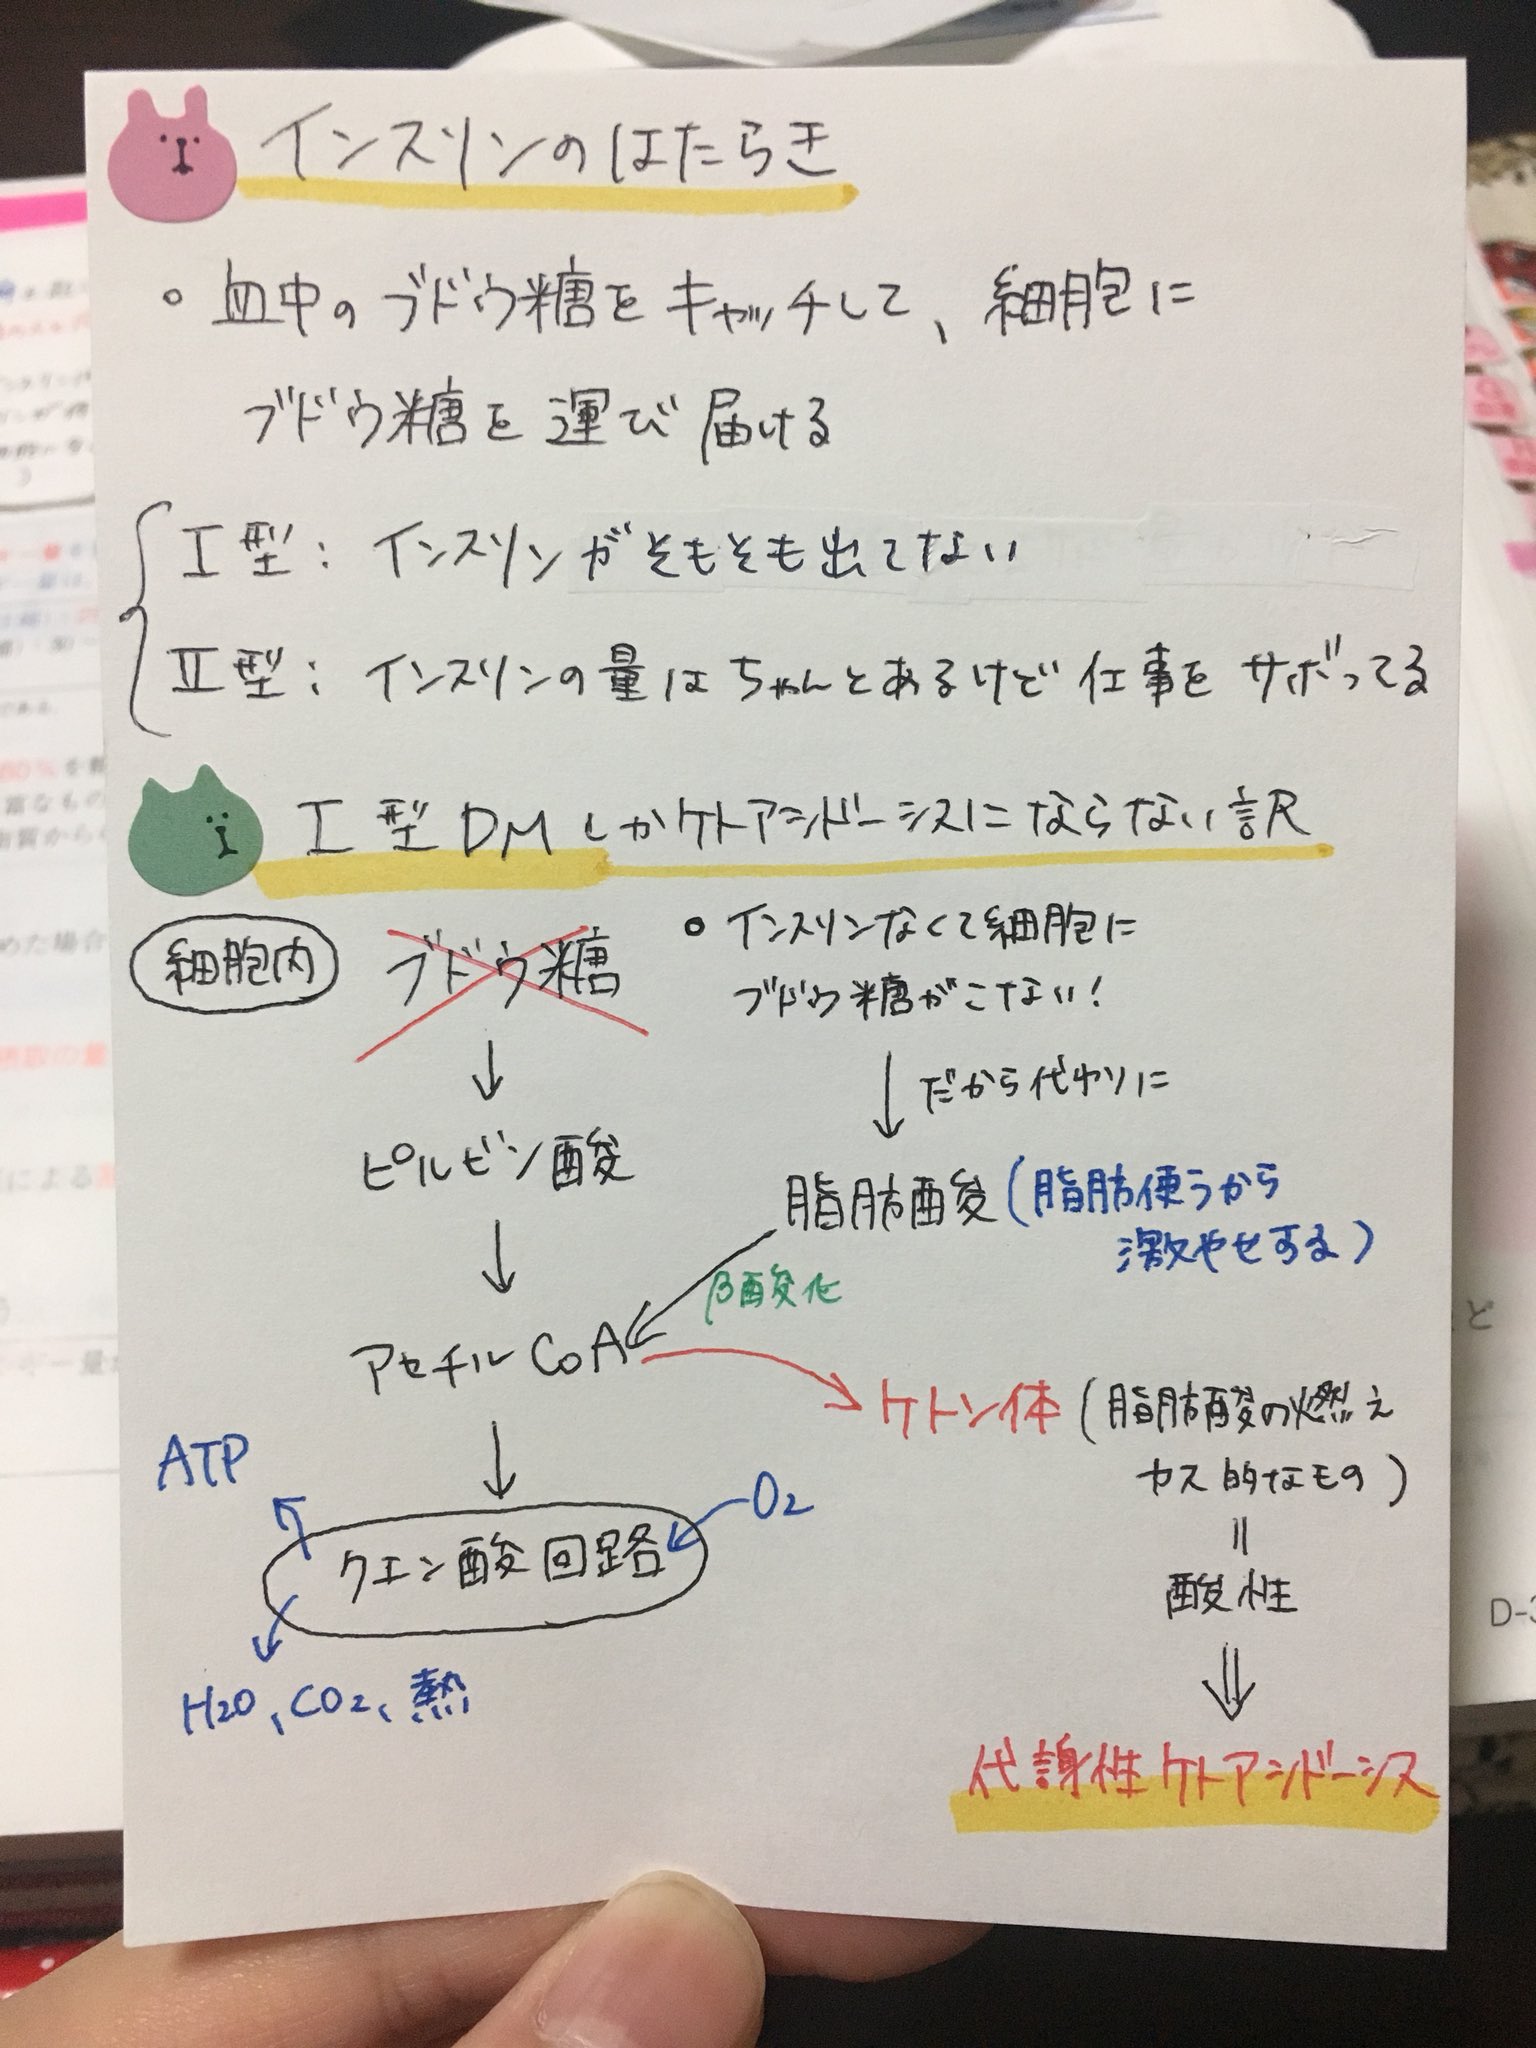 インスリンのはたらき
血中のブドウ糖をキャッチして、細胞に
ブドウ糖を運び届ける
I型：インスリンがそもそも出てない
II型：インスリンの量はちゃんとあるけど仕事をサボってる
I型DMしかケトアシドーシスにならない訳
細胞内
ブドウ糖
インスリンなくて細胞に
ブドウ糖がこない！
↓だから代わりに
↓
ピルビン酸
脂肪酸（脂肪使うから
激やせする）
↓
β酸化
アセチルCoA
ケトン体（脂肪酸の燃え
カス的なもの）
↓
ATP
O2
クエン酸回路
=
酸性
H2O、CO2、熱
⇓
代謝性ケトアシドーシス